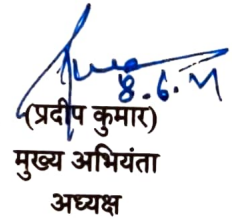 8.6.21
(प्रदीप कुमार)
मुख्य अभियंता
अध्यक्ष